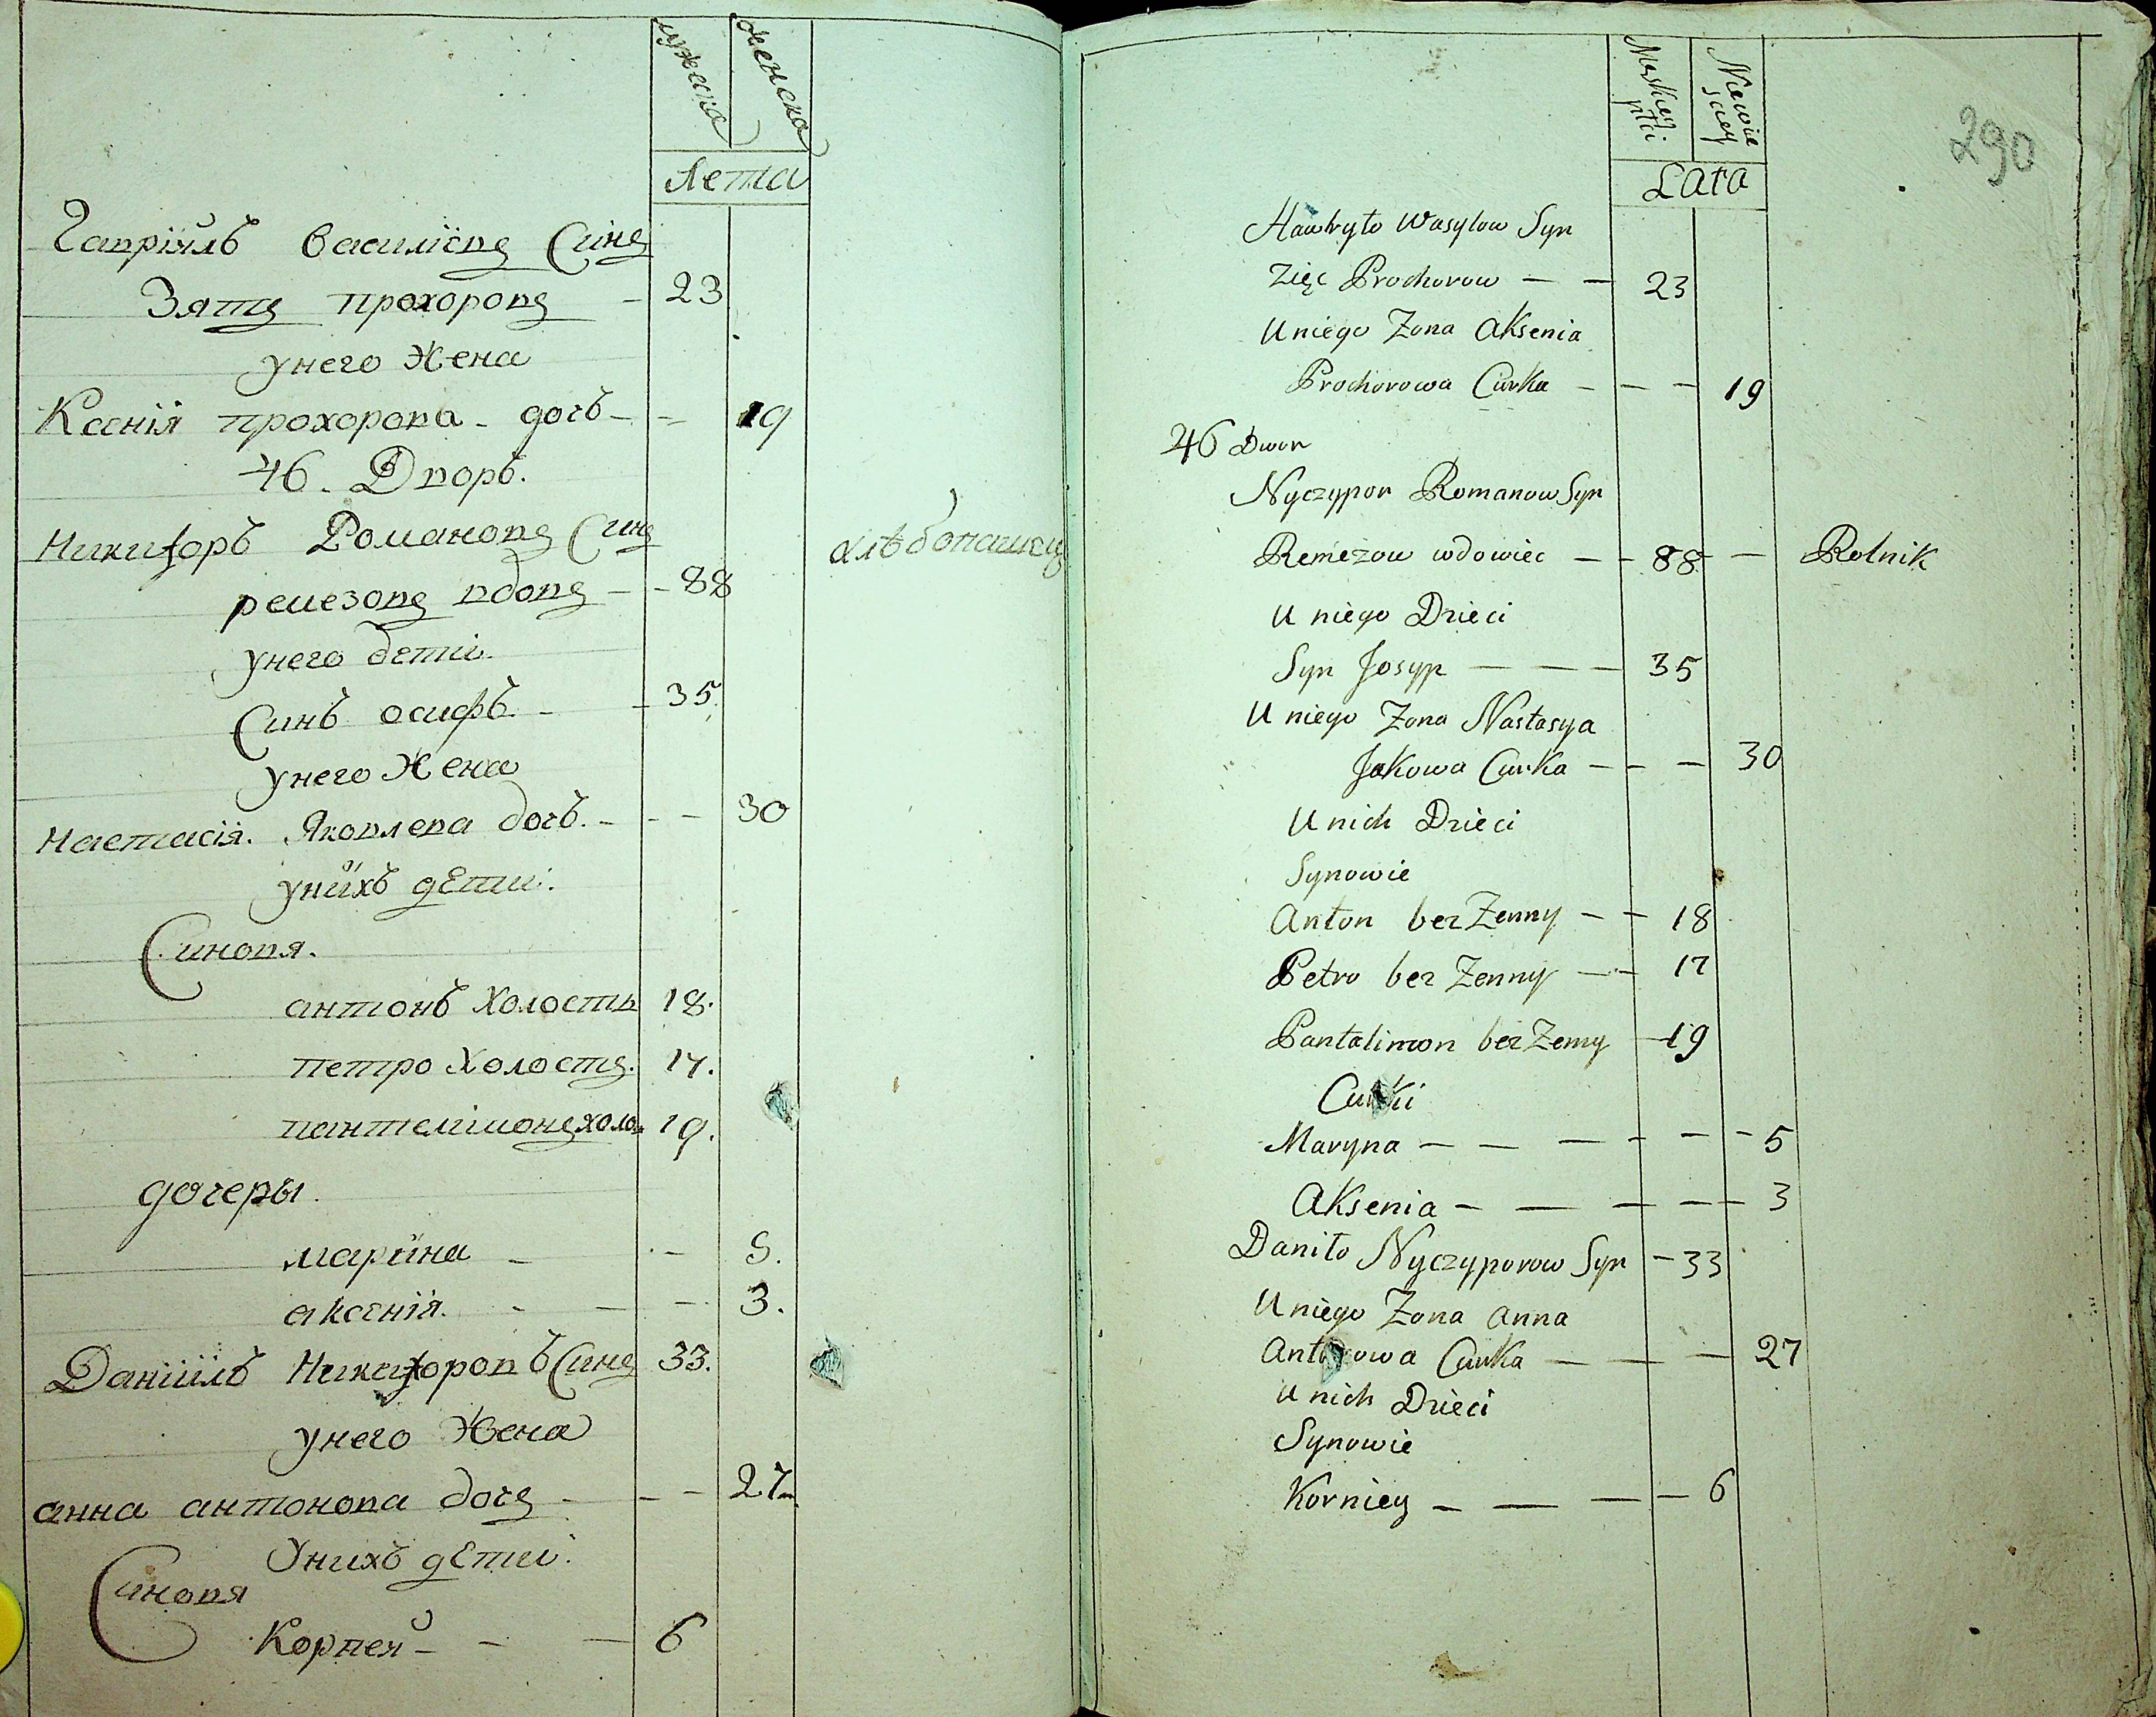 мужеска женска
Лета
Гавріилъ Василіевъ Синъ
Зятъ прохоровъ - 23
унего Жена
Ксенія прохорова - дочъ - - 19
46. Дворъ.
Никифоръ Романовъ Синъ
ремезовъ вдовъ - - 88
унего дети.
Синъ осифъ. - - 35.
унего Жена
Настасія. Яковлева дочъ. - - - 30
унихъ дети.
Синовя.
антонъ холостъ 18.
петро холостъ. 17.
пантелімонъ холо: 19.
дочеры.
марина - - 5.
аксенія. - - - 3.
Даніилъ Никифоровъ Синъ 33.
унего Жена
анна антонова дочъ - - - 27
Унихъ дети.
Синовя
Корней - - - 6
290
Męskiey płci Niewieściey
Lata
Hawryło Wasylow Syn
Zięc Prochorow - - 23
U niego Zona Aksenia
Prochorowa Curka - - - 19
46 Dwor
Nyczypor Romanow Syn
Remezow wdowiec - - 88 - Rolnik
U niego Dzieci
Syn Josyp - - - 35
U niego Zona Nastasya
Jakowa Curka - - - 30
U nich Dzieci
Synowie
Anton bez Zenny - - 18
Petro bez Zenny - - 17
Pantalimon bez Zenny - 19
Curki
Maryna - - - - - - 5
Aksenia - - - - - 3
Daniło Nyczyporow Syn - 33
U niego Zona Anna
Antonowa Curka - - - 27
U nich Dzieci
Synowie
Korniey - - - - 6